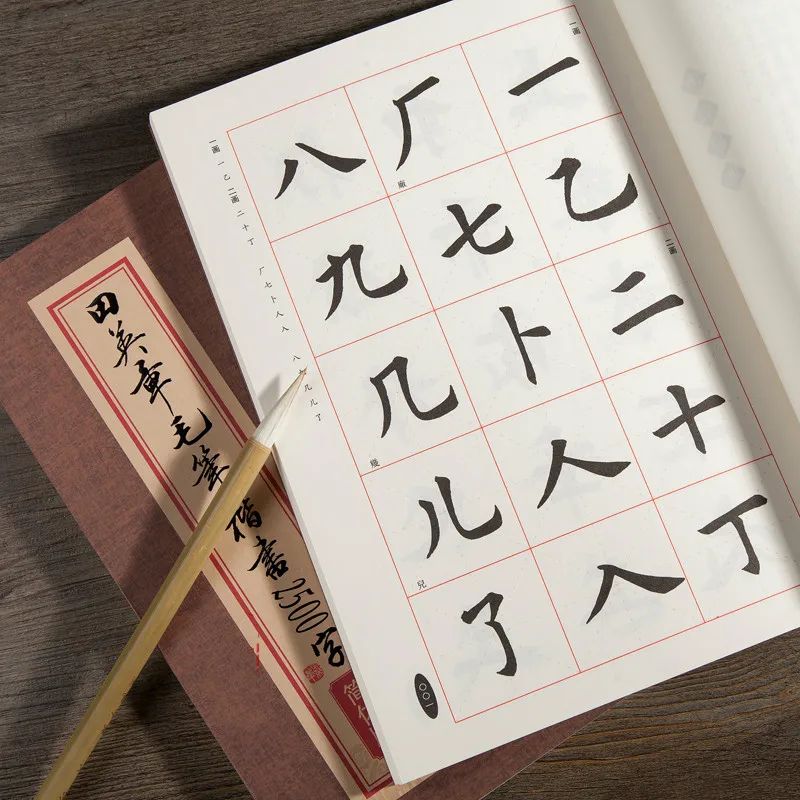 一画
一
乙
二画
二
十
丁
厂
廠
七
卜
人
入
八
九
几
幾
儿
兒
了
一画 一乙 二画 二十丁 厂七卜人入 八九几儿了
〇〇一
田英章毛筆楷書2500字
简体